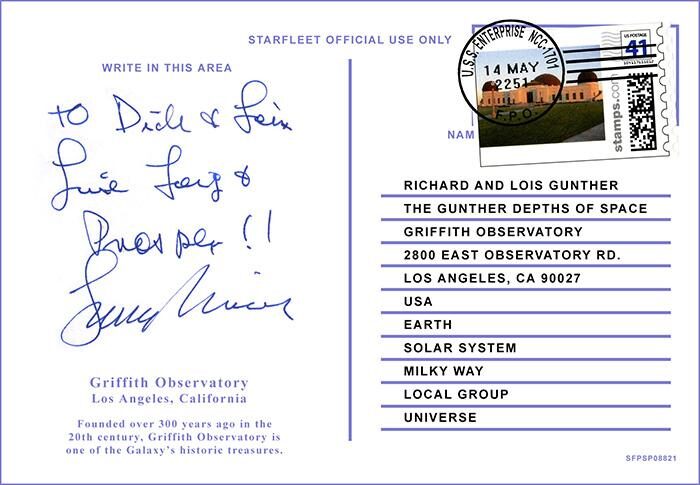 STARFLEET OFFICIAL USE ONLY
U.S.S. ENTERPRISE NCC-1701
14 MAY
2251
F.P.O.
US POSTAGE
41
stamps.com
WRITE IN THIS AREA
To Dick & Lois
Live Long &
Prosper!!
NAM
RICHARD AND LOIS GUNTHER
THE GUNTHER DEPTHS OF SPACE
GRIFFITH OBSERVATORY
2800 EAST OBSERVATORY RD.
LOS ANGELES, CA 90027
USA
EARTH
SOLAR SYSTEM
MILKY WAY
LOCAL GROUP
UNIVERSE
Griffith Observatory
Los Angeles, California
Founded over 300 years ago in the
20th century, Griffith Observatory is
one of the Galaxy's historic treasures.
SFPSP08821